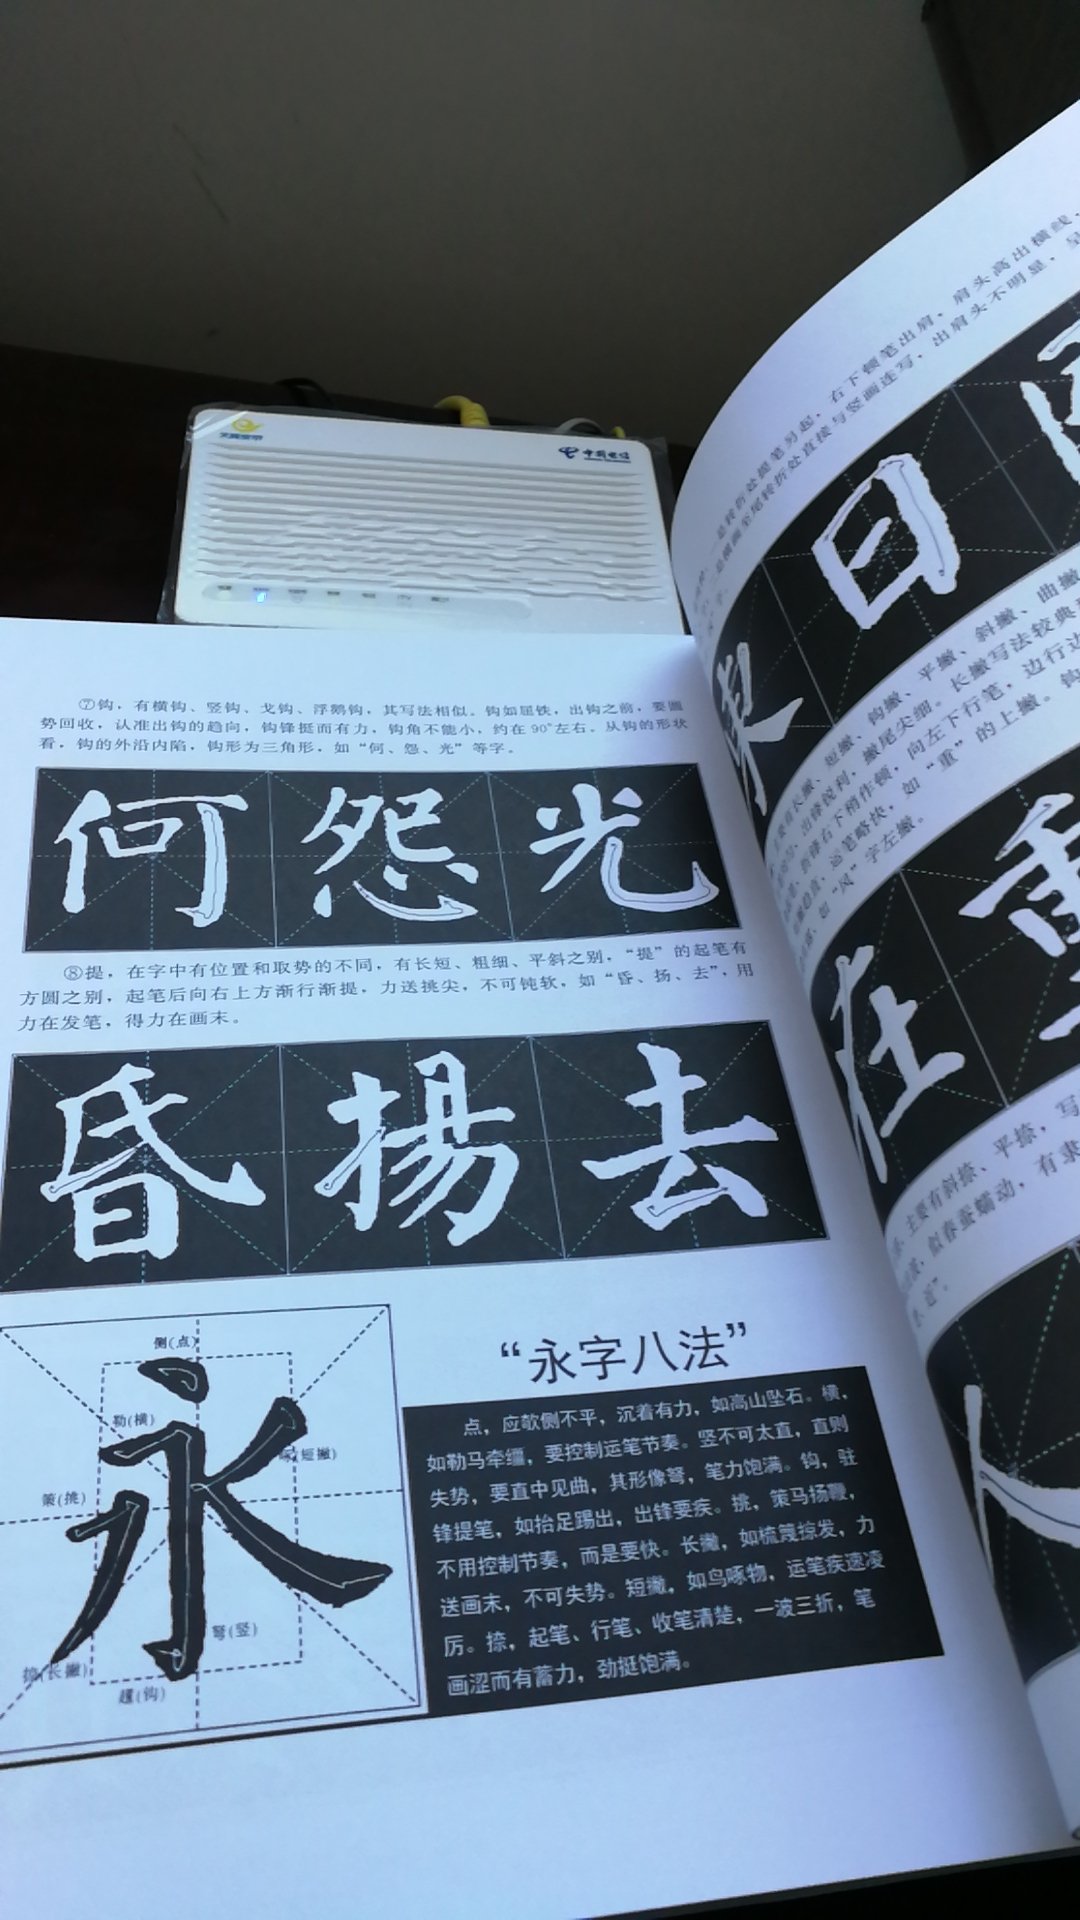 天翼宽带
中国电信
⑦钩，有横钩、竖钩、戈钩、浮鹅钩，其写法相似。钩如屈铁，出钩之前，要圆
势回收，认准出钩的趋向，钩锋挺而有力，钩角不能小，约在90°左右。从钩的形状
看，钩的外沿内陷，钩形为三角形，如“何、怨、光”等字。
何怨光
⑧提，在字中有位置和取势的不同，有长短、粗细、平斜之别，“提”的起笔有
方圆之别，起笔后向右上方渐行渐提，力送挑尖，不可钝软，如“昏、扬、去”，用
力在发笔，得力在画末。
昏揚去
侧(点)
勒(横)
(短撇)
策(挑)
永
弩(竖)
(长撇)
趯(钩)
“永字八法”
点，应欹侧不平，沉着有力，如高山坠石。横，
如勒马牵缰，要控制运笔节奏。竖不可太直，直则
失势，要直中见曲，其形像弩，笔力饱满。钩，驻
锋提笔，如抬足踢出，出锋要疾。挑，策马扬鞭，
不用控制节奏，而是要快。长撇，如梳篦掠发，力
送画末，不可失势。短撇，如鸟啄物，运笔疾速凌
厉。捺，起笔、行笔、收笔清楚，一波三折，笔
画涩而有蓄力，劲挺饱满。
一是转折处提笔另起，右下顿笔出肩，肩头高出横线，
一是横画至尾转折处直接与竖画连写，出肩头不明显，呈
日
主要有长撇、短撇、钩撇、平撇、斜撇、曲撇
出锋锐利，撇尾尖细。长撇写法较典
折锋右下稍作顿，向左下行笔，边行边
运笔略快，如“重”的上撇。钩
如“风”字左撇。
重
在
主要有斜捺、平捺，写
似春蚕蠕动，有隶